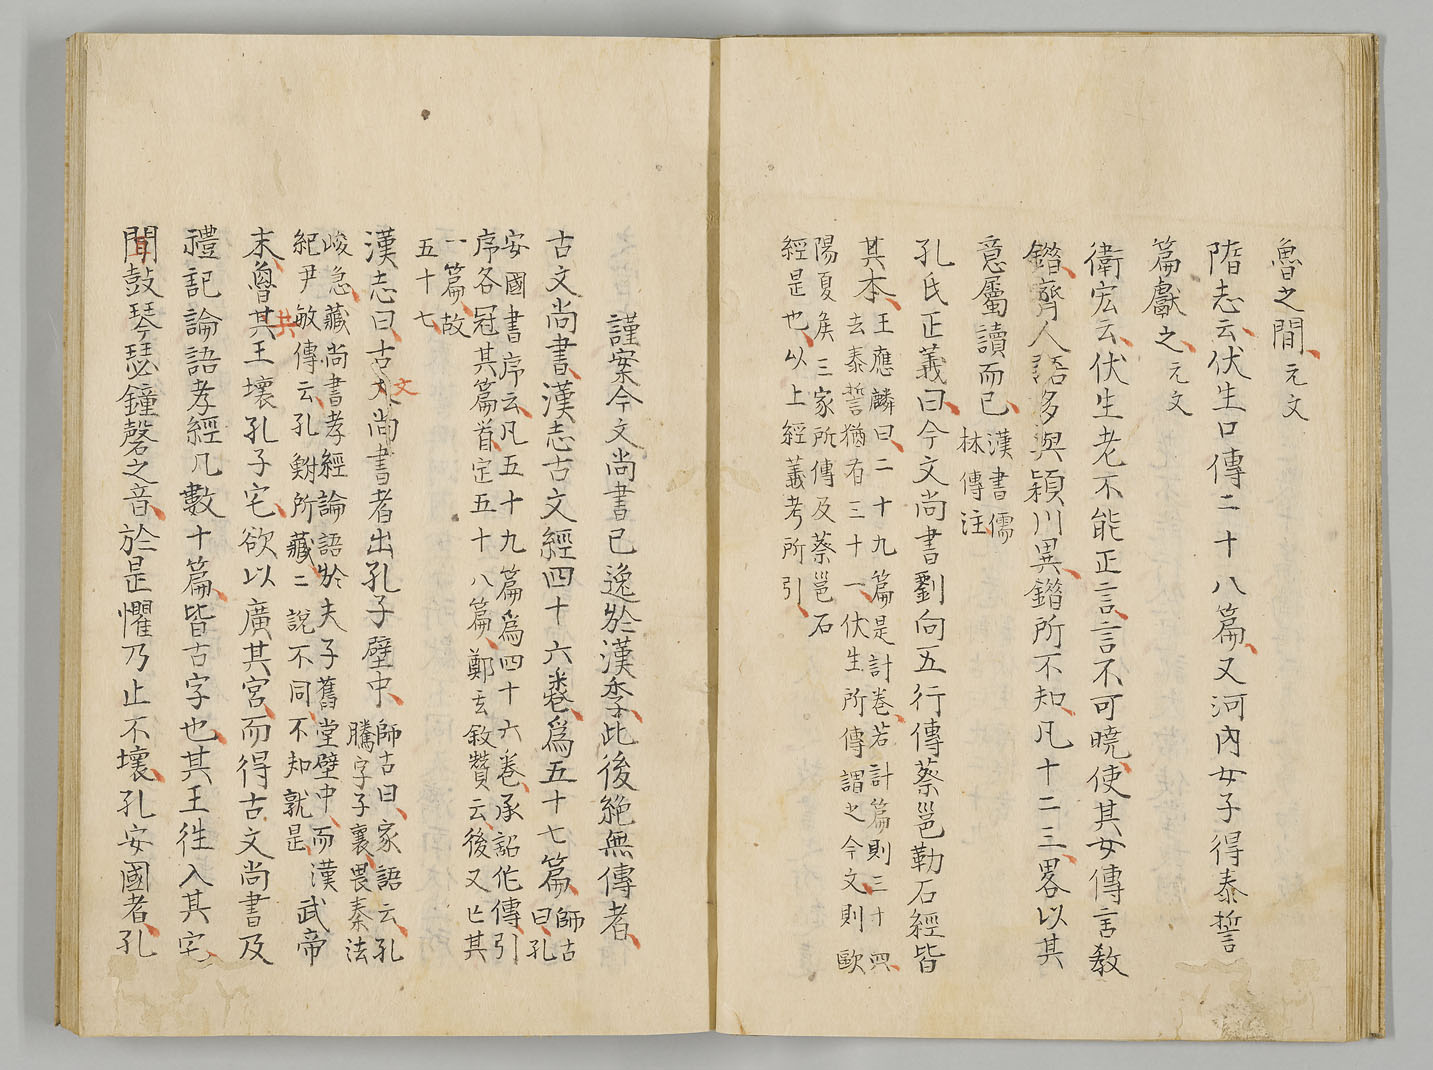 魯之間、元文
隋志云、伏生口傳二十八篇、又河內女子得泰誓
篇獻之、元文
衛宏云、伏生老不能正言、言不可曉、使其女傳言教
錯、齊人語多與潁川異、錯所不知、凡十二三、畧以其
意屬讀而已、漢書儒
林傳注
孔氏正義曰、今文尚書劉向五行傳蔡邕勒石經皆
其本、王應麟曰、二十九篇是計卷、若計篇則三十四、
去泰誓猶有三十一、伏生所傳謂之今文、則歐
陽夏矦三家所傳及蔡邕石
經是也、以上經義考所引、
謹案今文尚書已逸於漢季、此後絕無傳者、
古文尚書、漢志古文經四十六卷、爲五十七篇、師古
曰、孔
安國書序云、凡五十九篇爲四十六卷、承詔作傳、引
序各冠其篇首、定五十八篇、鄭玄敘贊云、後又亡其
一篇、故
五十七、
漢志曰、古文尚書者出孔子壁中、師古曰、家語云、孔
騰字子襄、畏秦法
峻急、藏尚書孝經論語於夫子舊堂壁中、而漢
紀尹敏傳云、孔鮒所藏、二說不同、不知孰是、武帝
末、魯共王壞孔子宅、欲以廣其宮、而得古文尚書及
禮記論語孝經凡數十篇、皆古字也、其王徃入其宅、
聞鼓琴瑟鐘磬之音、於是懼乃止不壞、孔安國者、孔